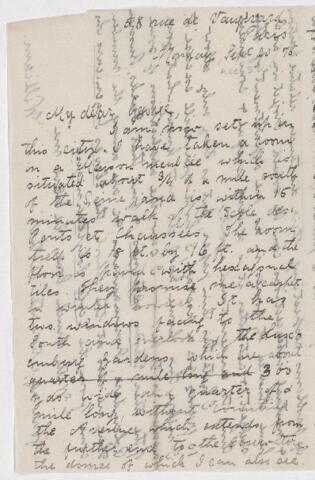 58 rue de Vaugirard
Paris
Monday, Sept 20 '75.
My dear
I am now set up in
this city. I have taken a room
in a Maison meublée which is
situated about 3/4 of a mile south
of the Seine and is within 15
minutes walk of the Ecole des
Ponts et Chaussées. The room
is 18 ft. by 16 ft. and the
floor is paved with hexagonal
tiles. They promise me a carpet
in winter. It has
two windows facing to the
South and overlook the Luxem-
bourg Gardens, which are about
quarter of a mile long and 300
yds. wide a quarter of a
mile long, without counting
the Avenue which extends from
the further end to the Observatoire
the domes of which I can also see.